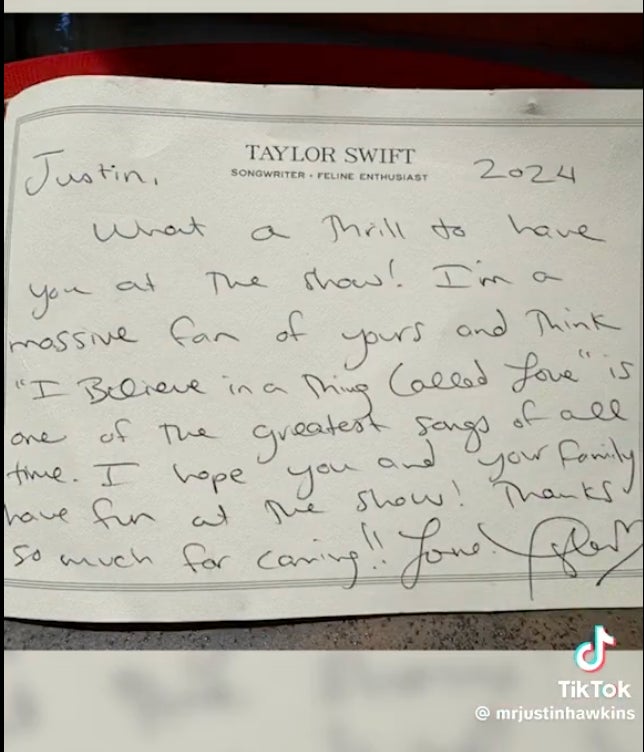 TAYLOR SWIFT
SONGWRITER • FELINE ENTHUSIAST
Justin,
2024
What a Thrill to have
you at The show! I'm a
massive fan of yours and Think
"I Believe in a Thing Called Love" is
one of The greatest songs of all
time. I hope you and your family
have fun at The show! Thanks
so much for caring!! Love! Taylor
TikTok
@ mrjustinhawkins